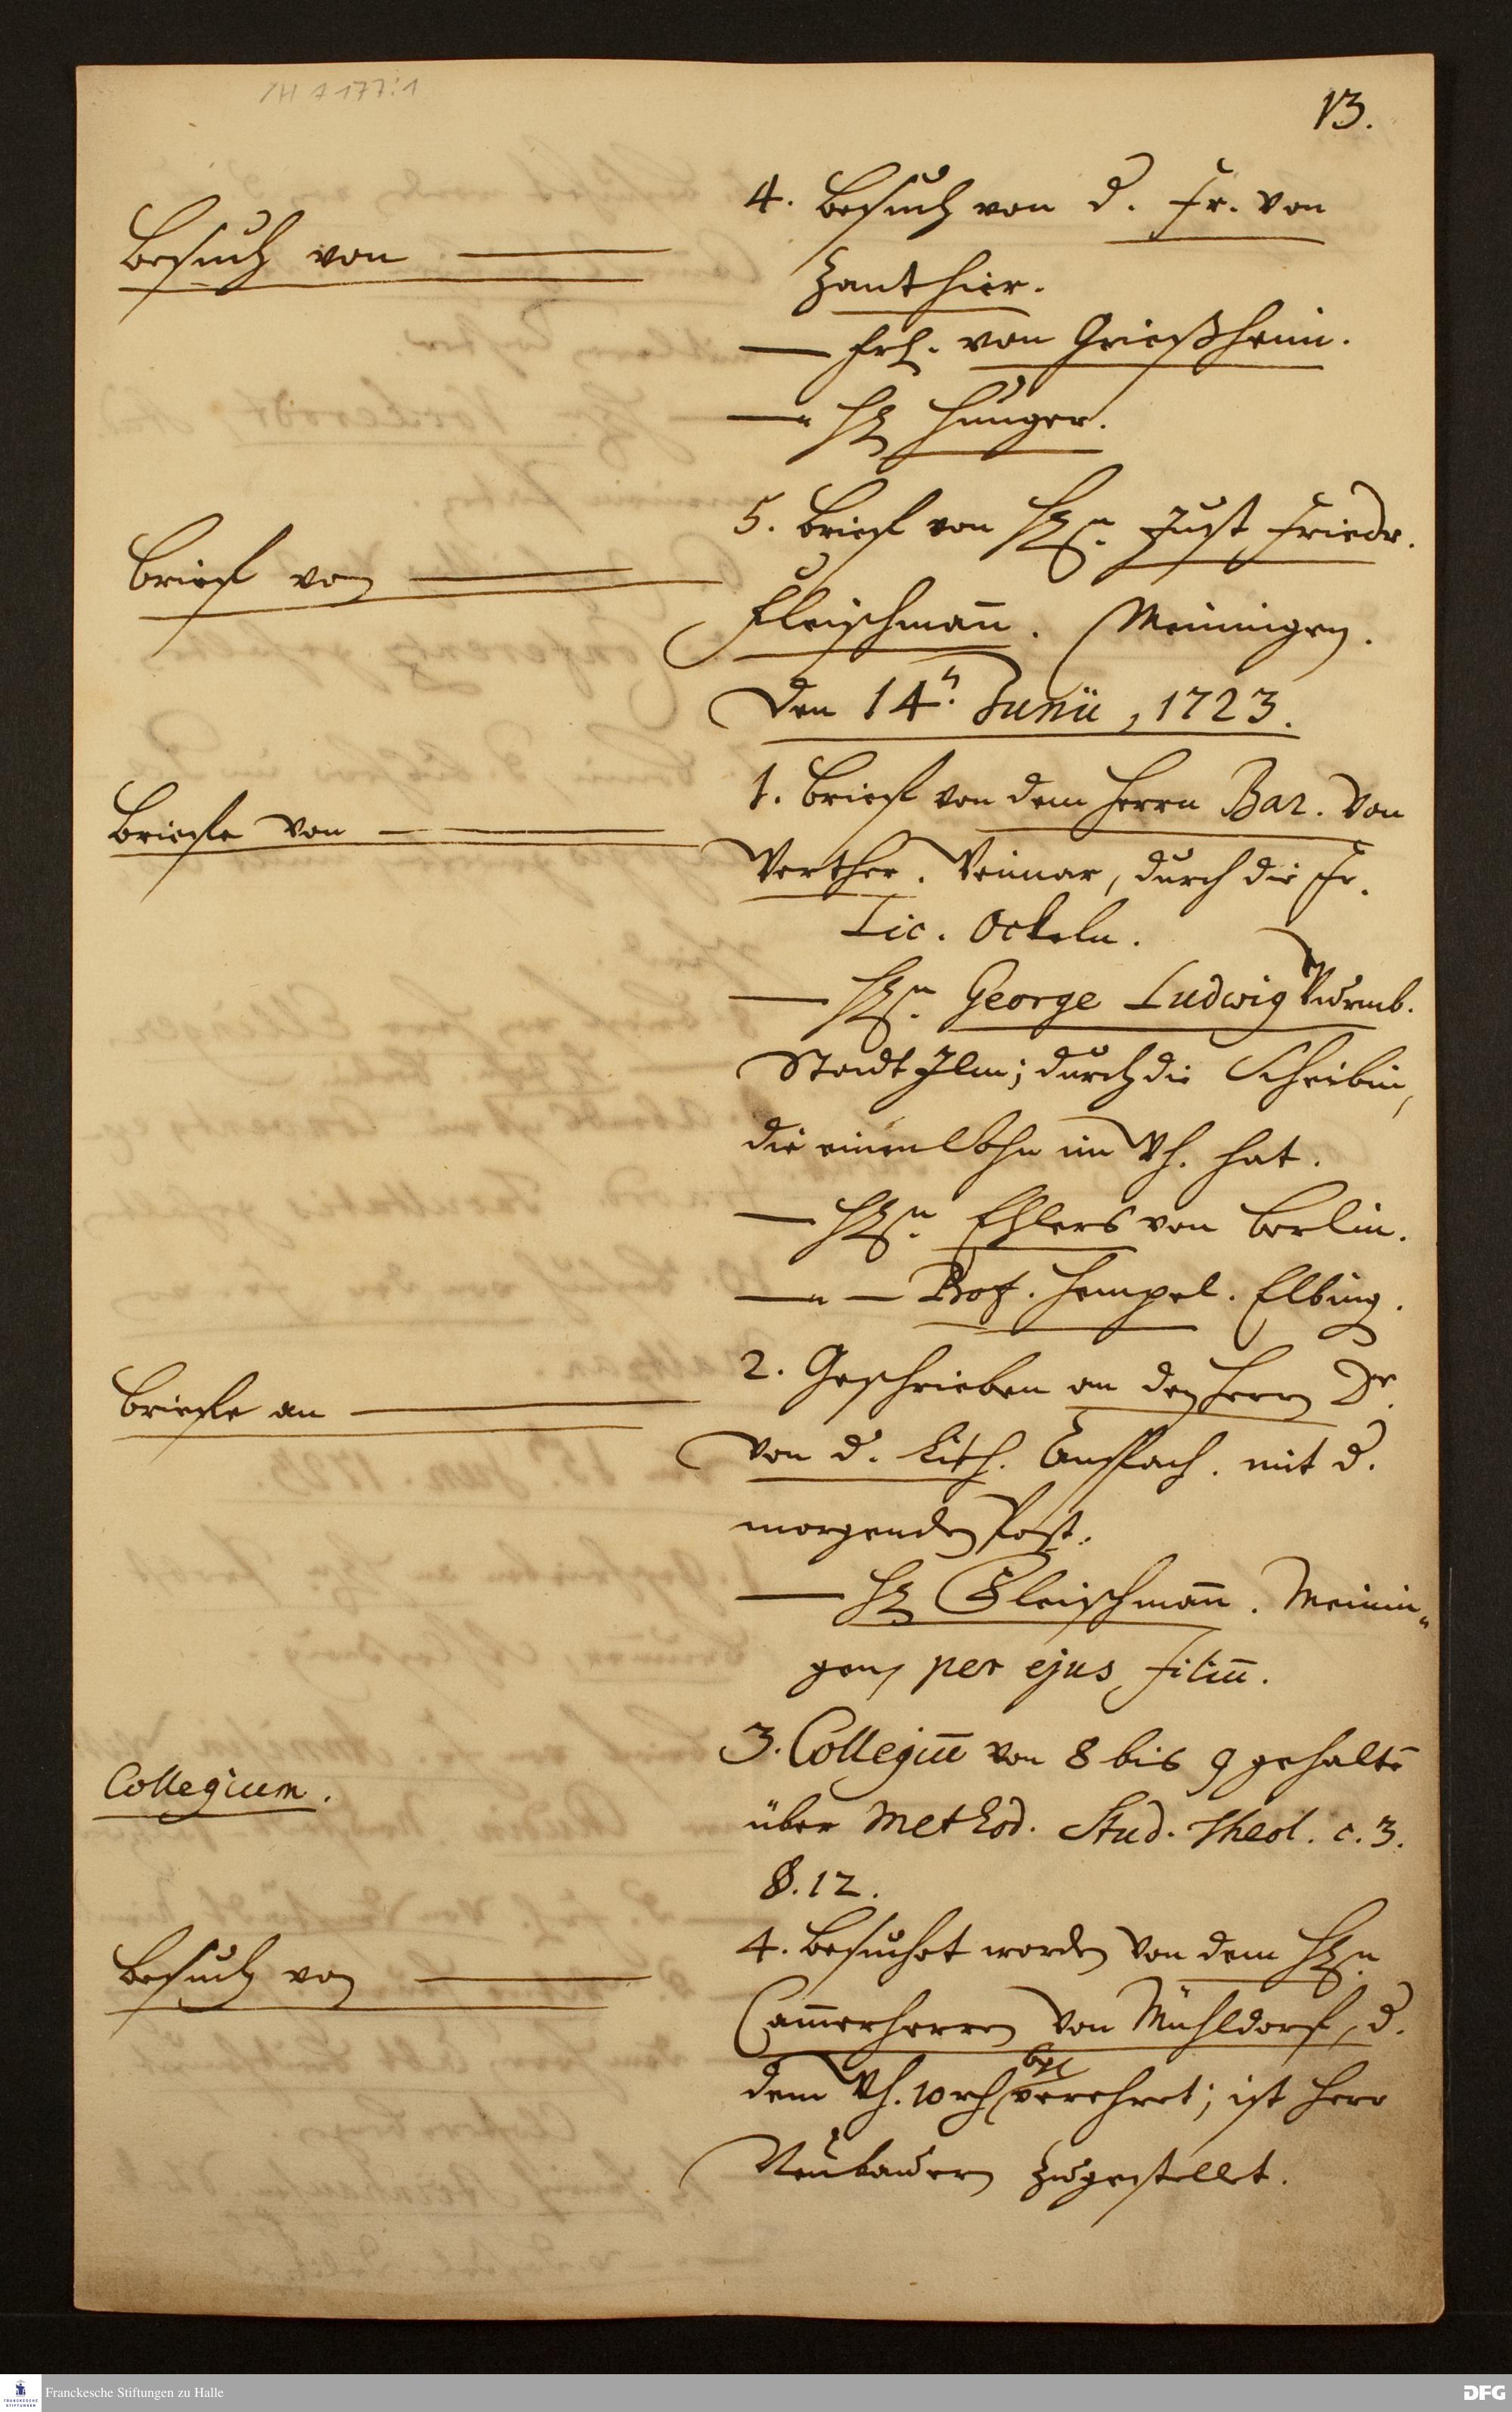 /H A 177:1
13.
Besuch von ——
4. Besuch von d. Fr. von
Zanthier.
— Frl. von Grießheim.
—" H. Hunger.
Brief von ——
5. Brief von H.n Just Friedr.
Fleischman̄. Meiningen.
den 14.n Junii, 1723.
Briefe von ——
1. Brief von dem Herrn Bar. von
Werther. Weimar, durch die Fr.
Lic. Ockeln.
— H.n George Ludwig Wurmb.
Stadt Ilm; durch die Scheibin,
die einen Sohn im Wh. hat.
— H.n Ehlers von Berlin.
—"— Prof. Hempel. Elbing.
Briefe an ——
2. Geschrieben an den Herrn Dr.
von d. Lith. Anspach. mit d.
morgenden Post.
— H. Fleischman̄. Meinin„
gen, per ejus filiū.
Collegium.
3. Collegiū von 8 bis 9 gehaltē
über Method. Stud. Theol. c. 3.
§. 12.
Besuch von ——
4. Besuchet worden von dem H.n
Cam̄erherren von Mühldorf, d.
dem Wh. 10 rh verehret; ist Herr
Neubauern zugestellet.
Franckesche Stiftungen zu Halle
DFG